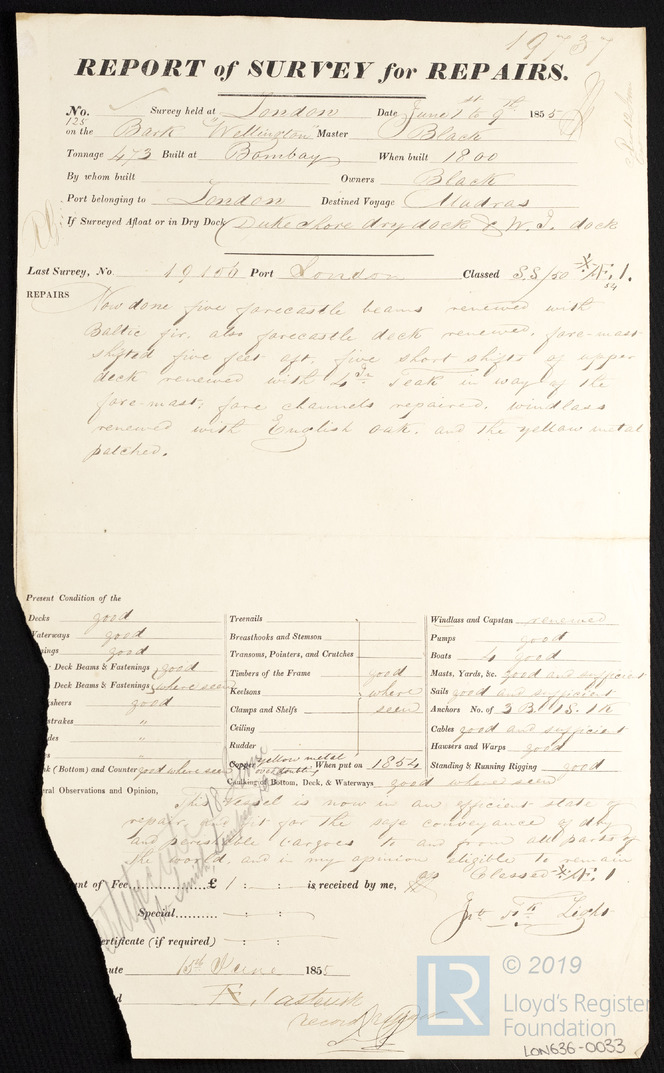 19737
REPORT of SURVEY for REPAIRS.
No. 125 Survey held at London Date June 1st to 9th 1855
on the Bark "Wellington" Master Black
Tonnage 473 Built at Bombay When built 1800
By whom built Owners Black
Port belonging to London Destined Voyage Madras
If Surveyed Afloat or in Dry Dock Duke Shore dry dock & W. I. dock
Last Survey, No. 19156 Port London Classed S.S/50 Æ 1.
54
REPAIRS
Now done five forecastle beams renewed with
Baltic fir. also forecastle deck renewed. fore-mast
shifted five feet aft. five short shifts of upper
deck renewed with 4 In Teak in way of the
fore-mast; fore channels repaired. windlass
renewed with English oak. and the yellow metal
patched.
Present Condition of the
Decks good
Waterways good
ings good
Deck Beams & Fastenings good
Deck Beams & Fastenings where seen
sheers good
strakes "
des "
s "
k (Bottom) and Counter good where seen
Treenails
Breasthooks and Stemson
Transoms, Pointers, and Crutches
Timbers of the Frame good
Keelsons where
Clamps and Shelfs seen
Ceiling
Rudder
Copper yellow metal over doubling When put on 1854
Caulking of Bottom, Deck, & Waterways good where seen
Windlass and Capstan renewed
Pumps good
Boats 4 good
Masts, Yards, &c. good and sufficient
Sails good and sufficient
Anchors No. of 3 B. 1 S. 1 K
Cables good and sufficient
Hawsers and Warps good
Standing & Running Rigging good
ral Observations and Opinion,
This vessel is now in an efficient state of
repair and fit for the safe conveyance of dry
and perishable cargoes to and from all parts of
the world. and in my opinion eligible to remain
as Classed Æ 1
nt of Fee............£ 1 : : is received by me,
Special......... - : - :
ertificate (if required) - : - :
Light
ute 15th June 1855
d
© 2019
LR
Lloyd's Register
Foundation
LON636-0033